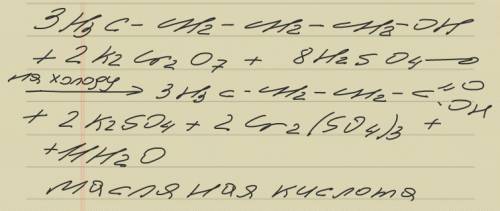 3H3C-CH2-CH2-CH2-OH
+ 2K2Cr2O7 + 8H2SO4 →
на холоду
→ 3H3C-CH2-CH2-C=O
OH
+ 2K2SO4 + 2Cr2(SO4)3 +
+ 11H2O
масляная кислота